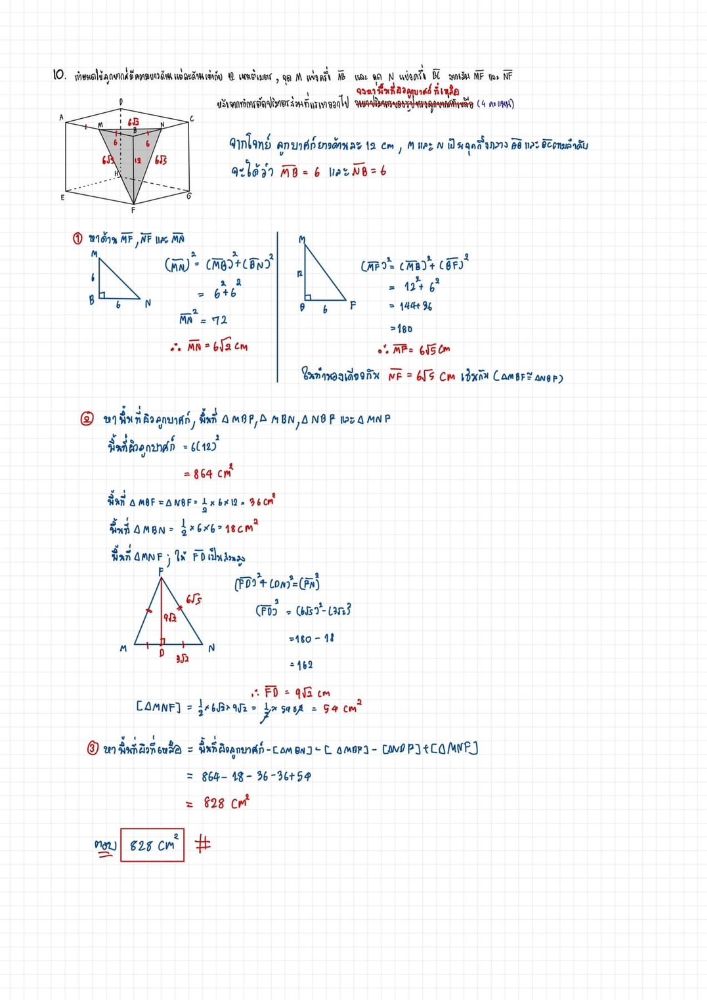 10. กำหนดให้ลูกบาศก์มีความยาวด้านแต่ละด้านเท่ากับ 12 เซนติเมตร , จุด M แบ่งครึ่ง AB และ จุด N แบ่งครึ่ง BC ลากเส้น MF และ NF
จงหาพื้นที่ผิวลูกบาศก์ที่เหลือ
หลังจากทำการตัดปริมาตรส่วนที่แรเงาออกไป (4 คะแนน)
D
A M 6√2 N C
B
6 6
6√5 12 6√5
H
E G
F
จากโจทย์ ลูกบาศก์ยาวด้านละ 12 cm , M และ N เป็นจุดกึ่งกลาง AB และ BC ตามลำดับ
จะได้ว่า MB = 6 และ NB = 6
① หาด้าน MF , NF และ MN
M
6
B 6 N
(MN)² = (MB)² + (BN)²
= 6² + 6²
MN² = 72
∴ MN = 6√2 cm
M
12
B 6 F
(MF)² = (MB)² + (BF)²
= 12² + 6²
= 144+36
= 180
∴ MF = 6√5 cm
ในทำนองเดียวกัน NF = 6√5 cm เช่นกัน (△MBF ≅ △NBF)
② หาพื้นที่ผิวลูกบาศก์, พื้นที่ △MBF, △MBN, △NBF และ △MNF
พื้นที่ผิวลูกบาศก์ = 6(12)²
= 864 cm²
พื้นที่ △MBF = △NBF = ½ × 6 × 12 = 36 cm²
พื้นที่ △MBN = ½ × 6 × 6 = 18 cm²
พื้นที่ △MNF ; ให้ FD เป็นส่วนสูง
F
6√5
9√2
M D N
3√2
(FD)² + (DN)² = (FN)²
(FD)² = (6√5)² - (3√2)²
= 180 - 18
= 162
∴ FD = 9√2 cm
[△MNF] = ½ × 6√2 × 9√2 = ½ × 54 × 2 = 54 cm²
③ หาพื้นที่ผิวที่เหลือ = พื้นที่ผิวลูกบาศก์ - [△MBN] - [△MBF] - [△NBF] + [△MNF]
= 864 - 18 - 36 - 36 + 54
= 828 cm²
ตอบ 828 cm² #